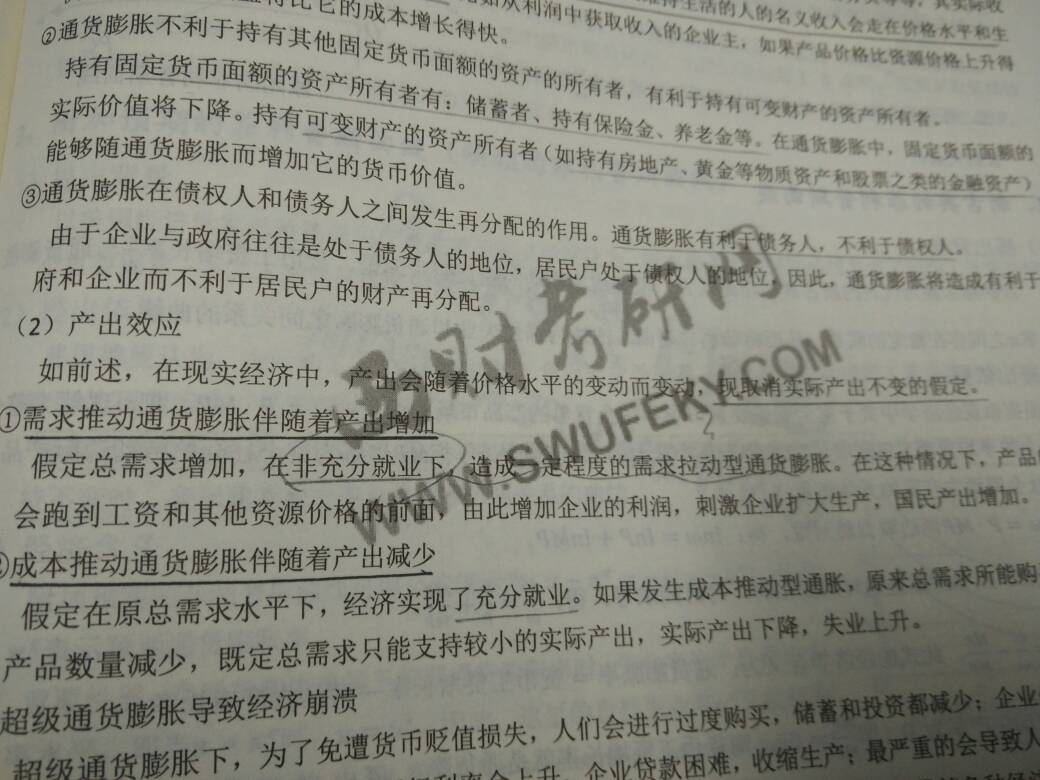 如从利润中获取收入的企业主，如果产品价格比资源价格上升得
持生活的人的名义收入会走在价格水平和生
比它的成本增长得快。
②通货膨胀不利于持有其他固定货币面额的资产的所有者，有利于持有可变财产的资产所有者。
持有固定货币面额的资产所有者有：储蓄者、持有保险金、养老金等。在通货膨胀中，固定货币面额的
实际价值将下降。持有可变财产的资产所有者（如持有房地产、黄金等物质资产和股票之类的金融资产）
能够随通货膨胀而增加它的货币价值。
③通货膨胀在债权人和债务人之间发生再分配的作用。通货膨胀有利于债务人，不利于债权人。
由于企业与政府往往是处于债务人的地位，居民户处于债权人的地位，因此，通货膨胀将造成有利于
府和企业而不利于居民户的财产再分配。
（2）产出效应
如前述，在现实经济中，产出会随着价格水平的变动而变动，现取消实际产出不变的假定。
①需求推动通货膨胀伴随着产出增加
假定总需求增加，在非充分就业下，造成一定程度的需求拉动型通货膨胀。在这种情况下，产品
会跑到工资和其他资源价格的前面，由此增加企业的利润，刺激企业扩大生产，国民产出增加。
成本推动通货膨胀伴随着产出减少
假定在原总需求水平下，经济实现了充分就业。如果发生成本推动型通胀，原来总需求所能购
产品数量减少，既定总需求只能支持较小的实际产出，实际产出下降，失业上升。
超级通货膨胀导致经济崩溃
超级通货膨胀下，为了免遭货币贬值损失，人们会进行过度购买，储蓄和投资都减少；企业
利率会上升，企业贷款困难，收缩生产；最严重的会导致人
西财考研网
WWW.SWUFEKY.COM